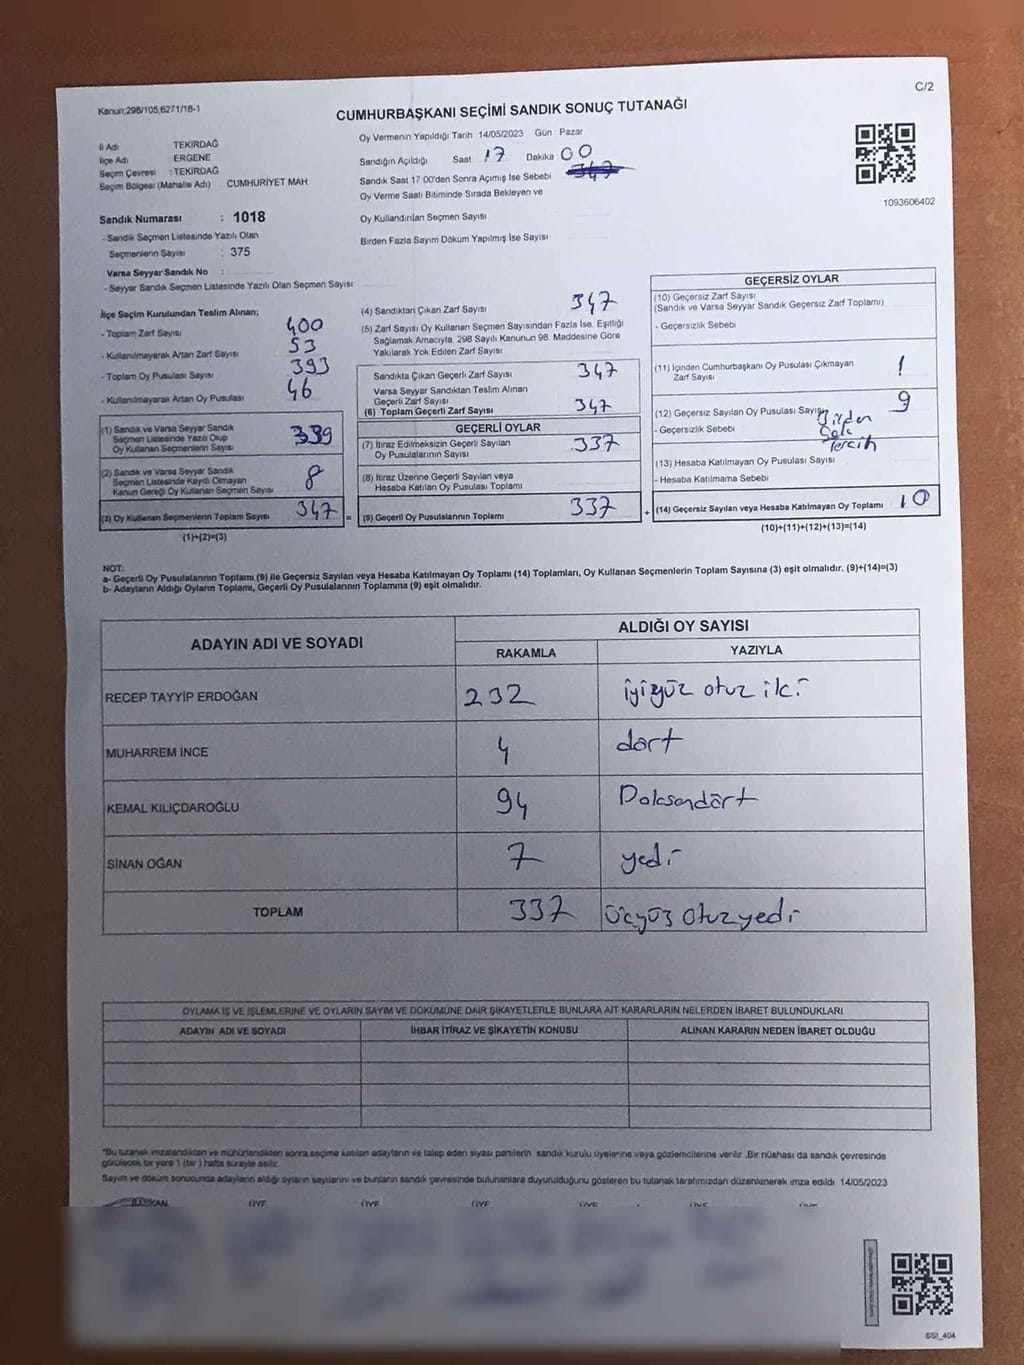 C/2
Kanun:298/105,6271/18-1
CUMHURBAŞKANI SEÇİMİ SANDIK SONUÇ TUTANAĞI
İl Adı TEKİRDAĞ
İlçe Adı ERGENE
Seçim Çevresi : TEKİRDAĞ
Seçim Bölgesi (Mahalle Adı) CUMHURİYET MAH.
Sandık Numarası : 1018
- Sandık Seçmen Listesinde Yazılı Olan
Seçmenlerin Sayısı : 375
Varsa Seyyar Sandık No :
- Seyyar Sandık Seçmen Listesinde Yazılı Olan Seçmen Sayısı
Oy Vermenin Yapıldığı Tarih 14/05/2023 Gün Pazar
Sandığın Açıldığı Saat 17 Dakika 00
Sandık Saat 17:00'den Sonra Açımış İse Sebebi 347
Oy Verme Saati Bitiminde Sırada Bekleyen ve
Oy Kullandırılan Seçmen Sayısı
Birden Fazla Sayım Döküm Yapılmış İse Sayısı
1093606402
İlçe Seçim Kurulundan Teslim Alınan;
- Toplam Zarf Sayısı 400
- Kullanılmayarak Artan Zarf Sayısı 53
- Toplam Oy Pusulası Sayısı 393
- Kullanılmayarak Artan Oy Pusulası 46
(1) Sandık ve Varsa Seyyar Sandık
Seçmen Listesinde Yazılı Olup
Oy Kullanan Seçmenlerin Sayısı 339
(2) Sandık ve Varsa Seyyar Sandık
Seçmen Listesinde Kayıtlı Olmayan
Kanun Gereği Oy Kullanan Seçmen Sayısı 8
(3) Oy Kullanan Seçmenlerin Toplam Sayısı 347 =
(1)+(2)=(3)
(4) Sandıktan Çıkan Zarf Sayısı 347
(5) Zarf Sayısı Oy Kullanan Seçmen Sayısından Fazla İse, Eşitliği
Sağlamak Amacıyla, 298 Sayılı Kanunun 98. Maddesine Göre
Yakılarak Yok Edilen Zarf Sayısı
Sandıkta Çıkan Geçerli Zarf Sayısı 347
Varsa Seyyar Sandıktan Teslim Alınan
Geçerli Zarf Sayısı
(6) Toplam Geçerli Zarf Sayısı 347
GEÇERLİ OYLAR
(7) İtiraz Edilmeksizin Geçerli Sayılan
Oy Pusulalarının Sayısı 337
(8) İtiraz Üzerine Geçerli Sayılan veya
Hesaba Katılan Oy Pusulası Toplamı
(9) Geçerli Oy Pusulalarının Toplamı 337 +
GEÇERSİZ OYLAR
(10) Geçersiz Zarf Sayısı
(Sandık ve Varsa Seyyar Sandık Geçersiz Zarf Toplamı)
- Geçersizlik Sebebi
(11) İçinden Cumhurbaşkanı Oy Pusulası Çıkmayan
Zarf Sayısı 1
(12) Geçersiz Sayılan Oy Pusulası Sayısı 9
- Geçersizlik Sebebi Birden
Tercih
(13) Hesaba Katılmayan Oy Pusulası Sayısı
- Hesaba Katılmama Sebebi
(14) Geçersiz Sayılan veya Hesaba Katılmayan Oy Toplamı 10
(10)+(11)+(12)+(13)=(14)
NOT:
a- Geçerli Oy Pusulalarının Toplamı (9) ile Geçersiz Sayılan veya Hesaba Katılmayan Oy Toplamı (14) Toplamları, Oy Kullanan Seçmenlerin Toplam Sayısına (3) eşit olmalıdır. (9)+(14)=(3)
b- Adayların Aldığı Oyların Toplamı, Geçerli Oy Pusulalarının Toplamına (9) eşit olmalıdır.
ADAYIN ADI VE SOYADI
ALDIĞI OY SAYISI
RAKAMLA YAZIYLA
RECEP TAYYİP ERDOĞAN 232 iyiyüz otuz iki
MUHARREM İNCE 4 dört
KEMAL KILIÇDAROĞLU 94 Doksandört
SİNAN OĞAN 7 yedi
TOPLAM 337 üçyüz otuzyedi
OYLAMA İŞ VE İŞLEMLERİNE VE OYLARIN SAYIM VE DÖKÜMÜNE DAİR ŞİKAYETLERLE BUNLARA AİT KARARLARIN NELERDEN İBARET BULUNDUKLARI
ADAYIN ADI VE SOYADI İHBAR İTİRAZ VE ŞİKAYETİN KONUSU ALINAN KARARIN NEDEN İBARET OLDUĞU
*Bu tutanak imzalandıktan ve mühürlendikten sonra seçime katılan adayların ve talep eden siyasi partilerin sandık kurulu üyelerine veya gözlemcilerine verilir. Bir nüshası da sandık çevresinde
görülecek bir yere 1 (bir) hafta süreyle asılır.
Sayım ve döküm sonucunda adayların aldığı oyların sayılarını ve bunların sandık çevresinde bulunanlara duyurulduğunu gösteren bu tutanak tarafımızdan düzenlenerek imza edildi. 14/05/2023
BAŞKAN ÜYE ÜYE ÜYE ÜYE ÜYE
SSI_404